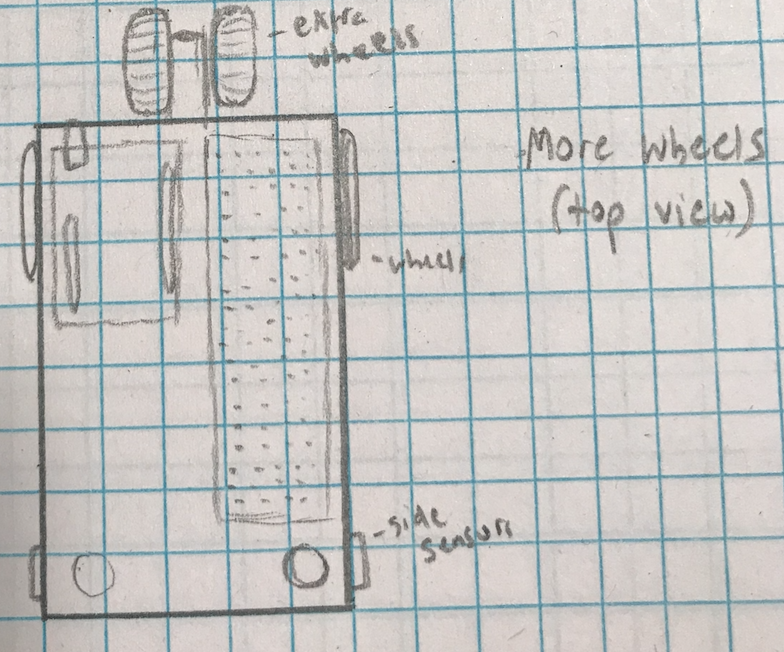 - extra
wheels
More wheels
(top view)
- wheels
- side
sensors